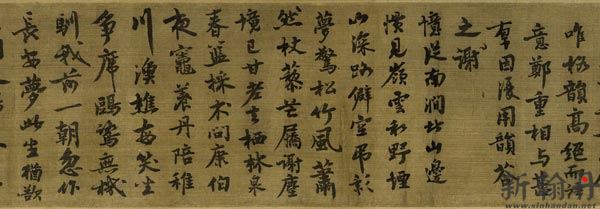 唯格韻高絕而語
意鄭重相與
厚因次用韻答
之謝
憶從南澗北山邊
慣見嶺雲和野煙
山深路僻空弔影
夢驚松竹風蕭
然杖藜芒屩謝塵
境已甘老去栖林泉
春籃採朮問康伯
夜竈養丹陪稚
川漁樵每笑坐
爭席鷗鷺無機
馴我前一朝忽作
長安夢此生猶欲
新翰丹
www.xinhandan.net